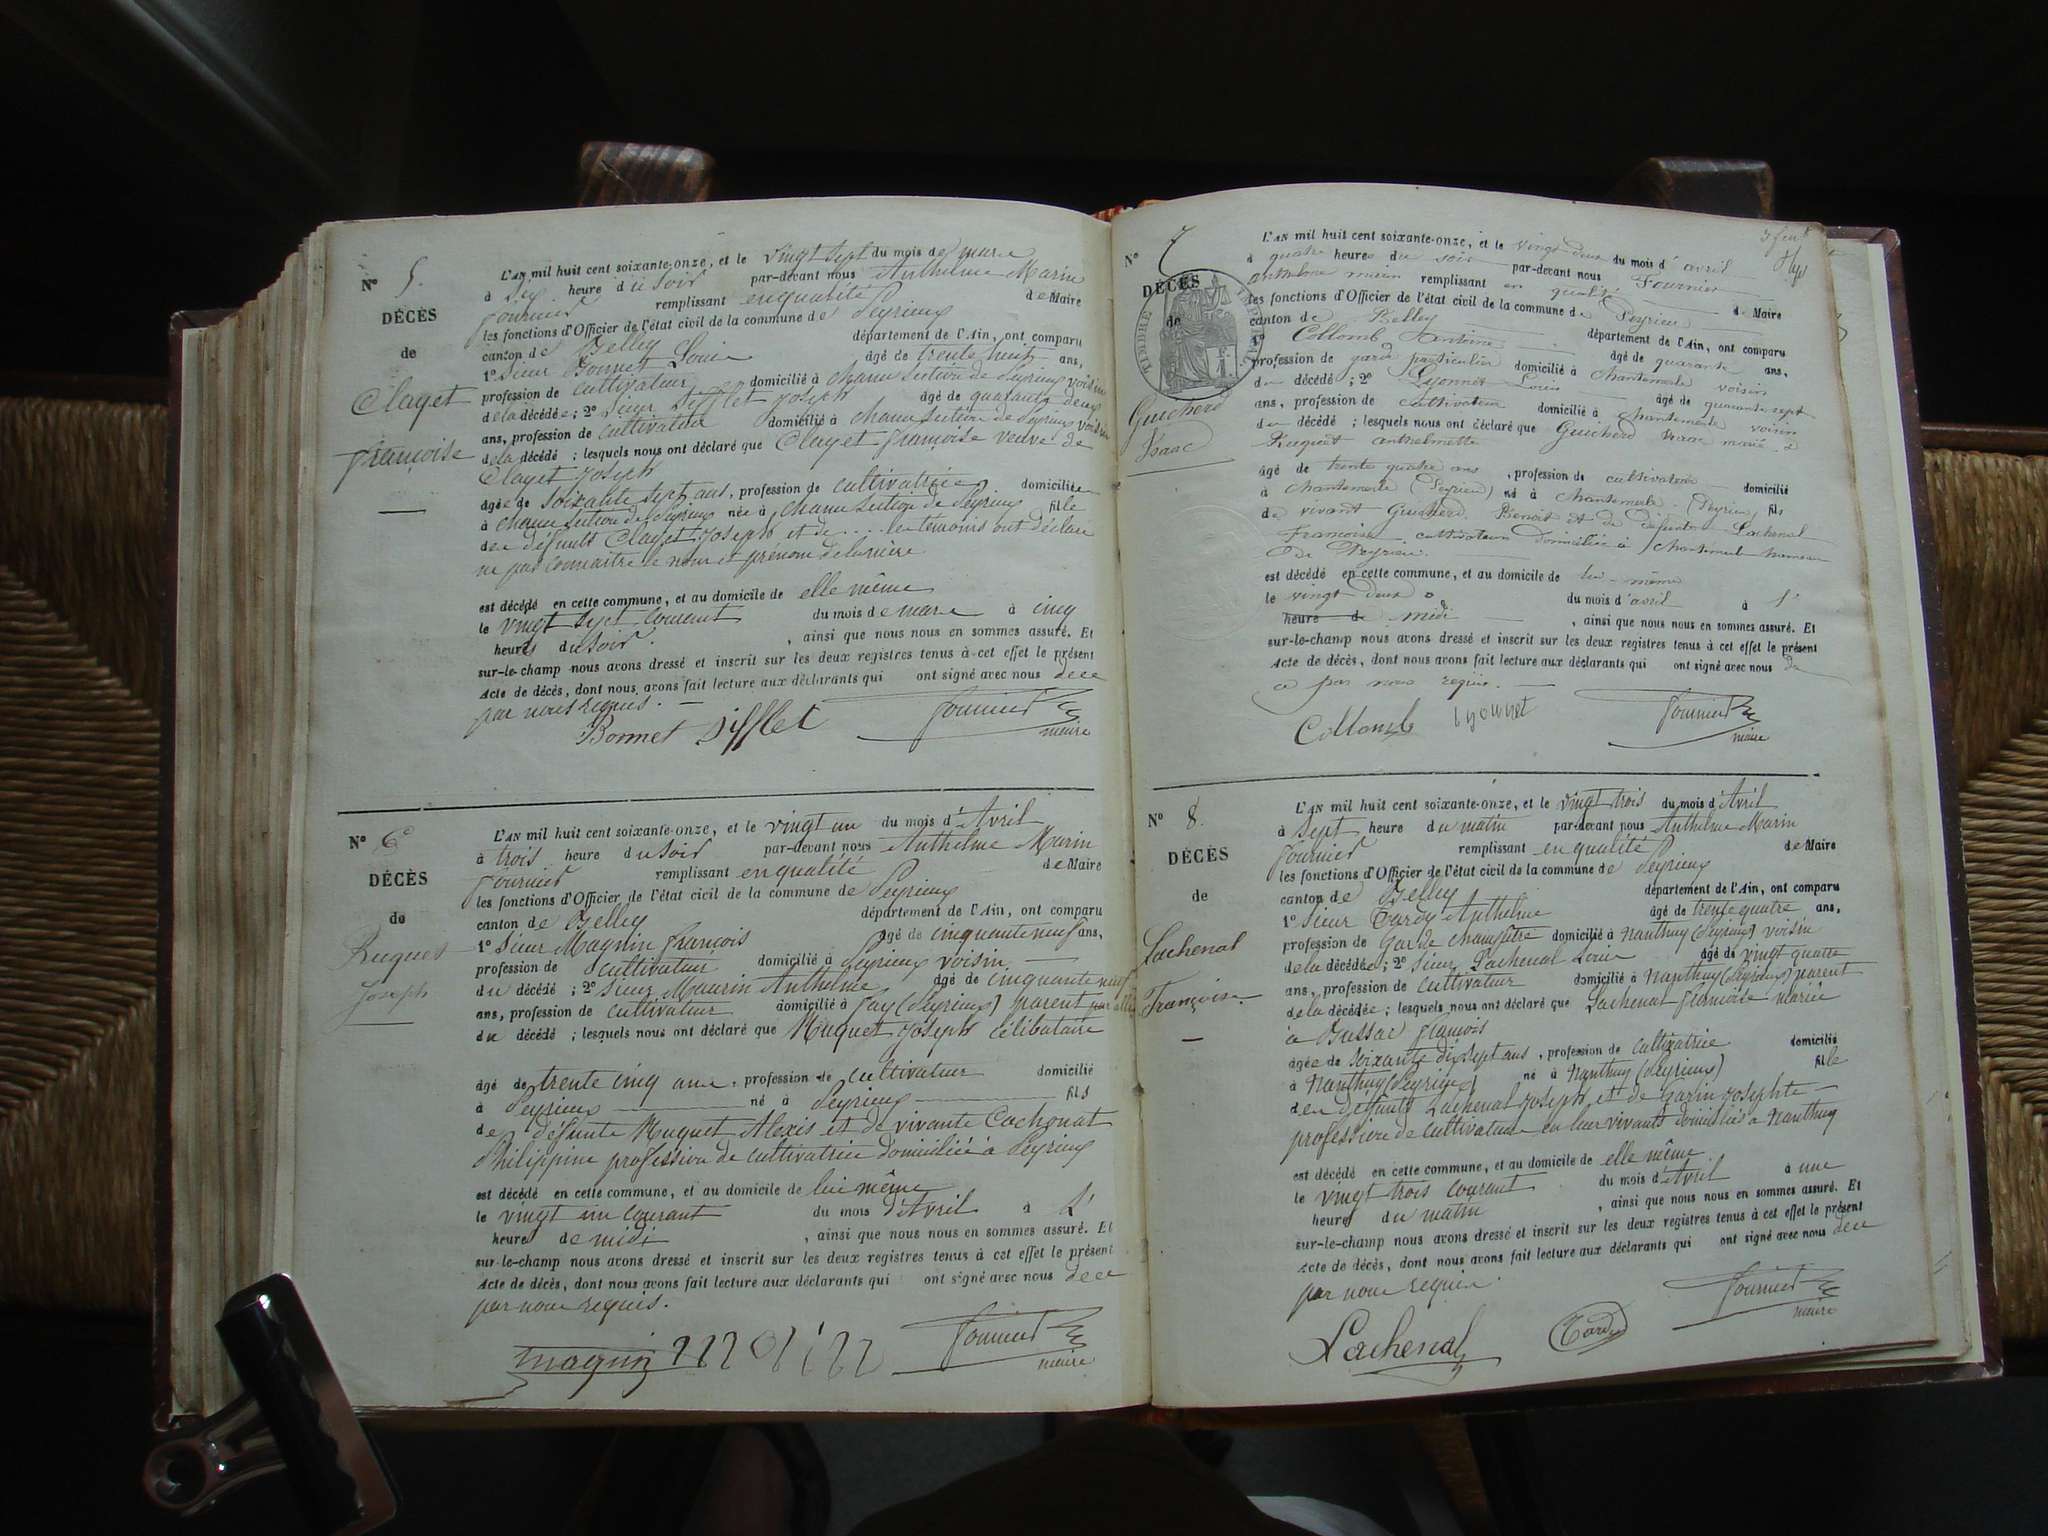 N° 5.
DÉCÈS
de
Clayet
françoise
L'AN mil huit cent soixante-onze, et le vingt sept du mois de mars
à six heure du soir par-devant nous Anthelme Marin
fournier remplissant en qualité de Maire
les fonctions d'Officier de l'état civil de la commune de Peyrieux
canton de Belley département de l'Ain, ont comparu
1° Sieur Bonnet Louis âgé de trente huit ans,
profession de cultivateur domicilié à chanu section de Peyrieux voisin
de la décédée; 2° Sieur Sifflet Joseph âgé de quarante deux
ans, profession de cultivateur domicilié à chanu section de Peyrieux voisin
de la décédé ; lesquels nous ont déclaré que Clayet françoise veuve de
Clayet Joseph
âgée de soixante sept ans, profession de cultivatrice domiciliée
à chanu section de Peyrieux née à chanu section de Peyrieux fille
de défunts Clayet Joseph et de ... les témoins ont déclaré
ne pas connaître le nom et prénom de la mère
est décédé en cette commune, et au domicile de elle même
le vingt sept courant du mois de mars à cinq
heures du soir. , ainsi que nous nous en sommes assuré. Et
sur-le-champ nous avons dressé et inscrit sur les deux registres tenus à cet effet le présent
Acte de décès, dont nous avons fait lecture aux déclarants qui ont signé avec nous de ce
par nous requis.
Bonnet Sifflet fournier
maire
N° 6
DÉCÈS
de
Huguet
Joseph
L'AN mil huit cent soixante-onze, et le vingt un du mois d'Avril
à trois heure du soir par-devant nous Anthelme Marin
fournier remplissant en qualité de Maire
les fonctions d'Officier de l'état civil de la commune de Peyrieux
canton de Belley département de l'Ain, ont comparu
1° Sieur Magnin françois âgé de cinquante neuf ans,
profession de cultivateur domicilié à Peyrieux voisin
du décédé ; 2° Sieur Maurin Anthelme âgé de cinquante neuf
ans, profession de cultivateur domicilié à fay (Peyrieux) parent par alli
du décédé ; lesquels nous ont déclaré que Huguet Joseph célibataire
âgé de trente cinq ans, profession de cultivateur domicilié
à Peyrieux né à Peyrieux fils
de défunte Huguet Alexis et de vivante Cochonat
Philippine profession de cultivatrice domiciliée à Peyrieux
est décédé en cette commune, et au domicile de lui même
le vingt un courant du mois d'Avril à L'
heure de midi , ainsi que nous nous en sommes assuré. Et
sur-le-champ nous avons dressé et inscrit sur les deux registres tenus à cet effet le présent
Acte de décès, dont nous avons fait lecture aux déclarants qui ont signé avec nous de ce
par nous requis.
magnin fournier
maire
3 feuil
N° 7
DÉCÈS
de
TIMBRE IMPÉRIAL
1 f.
Guicherd
Isaac
L'AN mil huit cent soixante-onze, et le vingt deux du mois d'avril
à quatre heures du soir par-devant nous Fournier
anthelme marin remplissant en qualité de Maire
les fonctions d'Officier de l'état civil de la commune de Peyrieu
canton de Belley département de l'Ain, ont comparu
1° Collomb Antoine âgé de quarante ans,
profession de garde particulier domicilié à Chantemerle voisin
du décédé ; 2° Lyonnet Louis âgé de quarante sept
ans, profession de cultivateur domicilié à chantemerle voisin
du décédé ; lesquels nous ont déclaré que Guicherd Isaac marié à
Huguet anthelmette
âgé de trente quatre ans , profession de cultivateur domicilié
à chantemerle (Peyrieu) né à chantemerle (Peyrieu) fils
de vivant Guicherd Benoit et de défunte Lachenal
Françoise cultivateurs domiciliés à Chantemerle hameau
de Peyrieu.
est décédé en cette commune, et au domicile de lui-même
le vingt deux du mois d'avril à L'
heure de midi , ainsi que nous nous en sommes assuré. Et
sur-le-champ nous avons dressé et inscrit sur les deux registres tenus à cet effet le présent
Acte de décès, dont nous avons fait lecture aux déclarants qui ont signé avec nous de
ce par nous requis.
Collomb lyonnet fournier
maire
N° 8.
DÉCÈS
de
Lachenal
Françoise
L'AN mil huit cent soixante-onze, et le vingt trois du mois d'Avril
à sept heure du matin par-devant nous Anthelme Marin
fournier remplissant en qualité de Maire
les fonctions d'Officier de l'état civil de la commune de Peyrieux
canton de Belley département de l'Ain, ont comparu
1° Sieur Tardy Anthelme âgé de trente quatre ans,
profession de Garde champêtre domicilié à Nanthuy (Peyrieux) voisin
de la décédée; 2° Sieur Lachenal Louis âgé de vingt quatre
ans, profession de cultivateur domicilié à Nanthuy (Peyrieux) parent
de la décédée; lesquels nous ont déclaré que Lachenal françoise mariée
à Bussac françois
âgée de soixante dix sept ans , profession de cultivatrice domicilié
à Nanthuy (Peyrieux) né à Nanthuy (Peyrieux) fille
de défunts Lachenal Joseph et de Garin Josephte
profession de cultivateurs en leur vivants domiciliés à Nanthuy
est décédé en cette commune, et au domicile de elle même
le vingt trois courant du mois d'Avril à une
heure du matin , ainsi que nous nous en sommes assuré. Et
sur-le-champ nous avons dressé et inscrit sur les deux registres tenus à cet effet le présent
Acte de décès, dont nous avons fait lecture aux déclarants qui ont signé avec nous de ce
par nous requis.
Lachenal Tardy fournier
maire